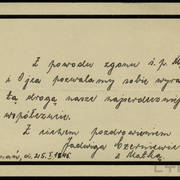 Z powodu zgonu ś. p. 
i Ojca pozwalamy sobie wyra
tą drogą nasze najserdeczniej
współczucie.
Z niskiem pozdrowieniem
Jadwiga Czerniewi
z Matką
d. 25. I.